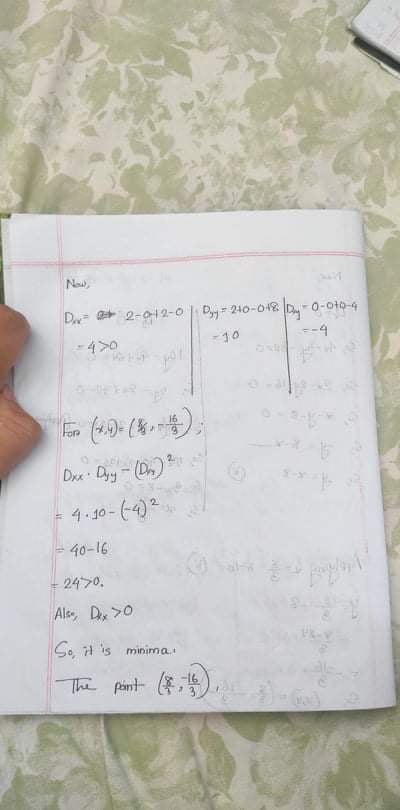 Now,
Dxx = 2-0+2-0 | Dyy = 2+0-0+8 | Dxy = 0-0+0-4
= 4>0 | = 10 | = -4
For (x,y) = (8/3, -16/3);
Dxx . Dyy - (Dxy)²
= 4.10 - (-4)²
= 40-16
= 24>0.
Also, Dxx >0
So, it is minima.
The point (8/3, -16/3),